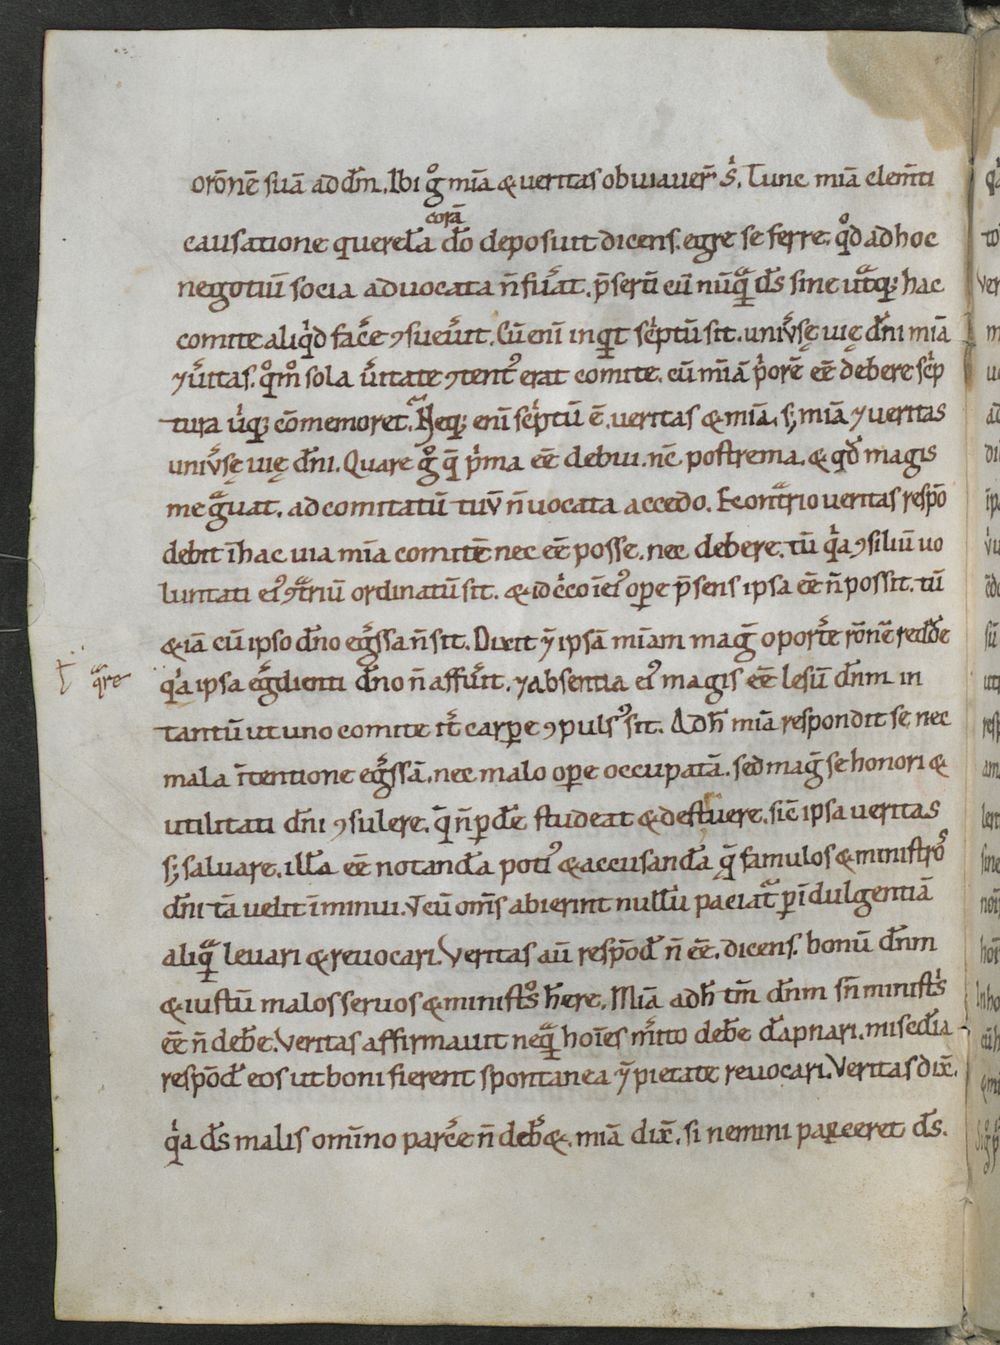 orōnē suā ad dm̄. Ibi gͦ mīa & ueritas obuiauer̄ s̓. Tunc mīa clem̄ti
corā
causatione querel̄a dō deposuit dicens. egre se ferre. qͦd ad hoc
negotiū socia aduocata n̄ fuͥat. p̄sertī cū nūqͣ d̄s sine ut̄qͣ; hac
comite aliqͥd fac̄e ꝯsueu̓it. Cū enī inqͥt scͥptū sit. uniu̓sę uię dn̄i mīa
⁊ u̓itas. qͦmͦ sola u̓itate ꝯtent᾽ erat comite. cū mīā pͥorē eē debere scͥp
tura uͥqͣ; cōmemoret. Neqͣ; enī scͥptū ē. ueritas & mīa. s; mīa ⁊ ueritas
uniu̓sę uię dn̄i. Quare gͦ qͣ pͥma eē debui. nc̄ postrema. & qd̄ magis
me gͣuat. ad comitatū tuū n̄ uocata accedo. Econtͣrio ueritas respō
debit ī hac uia mīa comitē nec eē posse. nec debere. tū qͥa ꝯsiliū uo
luntati ei᾽ ꝯtͣriū ordinatū sit. & idcͥco ī ei᾽ oꝑe p̄sens ipsa eē n̄ possit. tū
& iā cū ipso dn̄o egͤssa n̄ sit. Dixit ⁊̄ ipsā mīam maḡ oport̓e rōnē redd̓e
qͣre
qͥa ipsa eg̓dienti dn̄o n̄ affu̓it. ⁊ absentia ei᾽ magis eē lesū dn̄m in
tantū ut uno comite it̓ carꝑe ꝯpuls᾽ sit. Adh̄ mīa respondit se nec
mala ītentione egͤssā. nec malo oꝑe occupatā. sed maḡ se honori &
utilitati dn̄i ꝯsulere. qͥ n̄ ꝑd̓e studeat & destruere. sic̄ ipsa ueritas
s; saluare. ill̄a eē notand̄a poti᾽ & accusand̄a qͣ̄ famulos & ministro᾽
dn̄i tā uelit īminui. ut cū om̄s abierint null̄u paciat᾽ ꝑ īdulgentiā
aliqͣ leuari & reuocari. Veritas aū respōd̄ n̄ eē. dicens. bonū dn̄m
& iustū malos seruos & ministͦs h̄ere. Mīa adh̄ tm̄ dn̄m sn̄ ministͥs
eē n̄ deb̄e. Veritas affirmauit neqͣ̄ hoīes m̓ito deb̄e d̄apnari. mised̄ia
respōd̄ eos ut boni fierent spontanea ⁊̄ pietate reuocari. Veritas dix̄.
qͥa d̄s malis omīno parc̓e n̄ deb̓&. mīā dix̄. si nemini parceret d̄s.